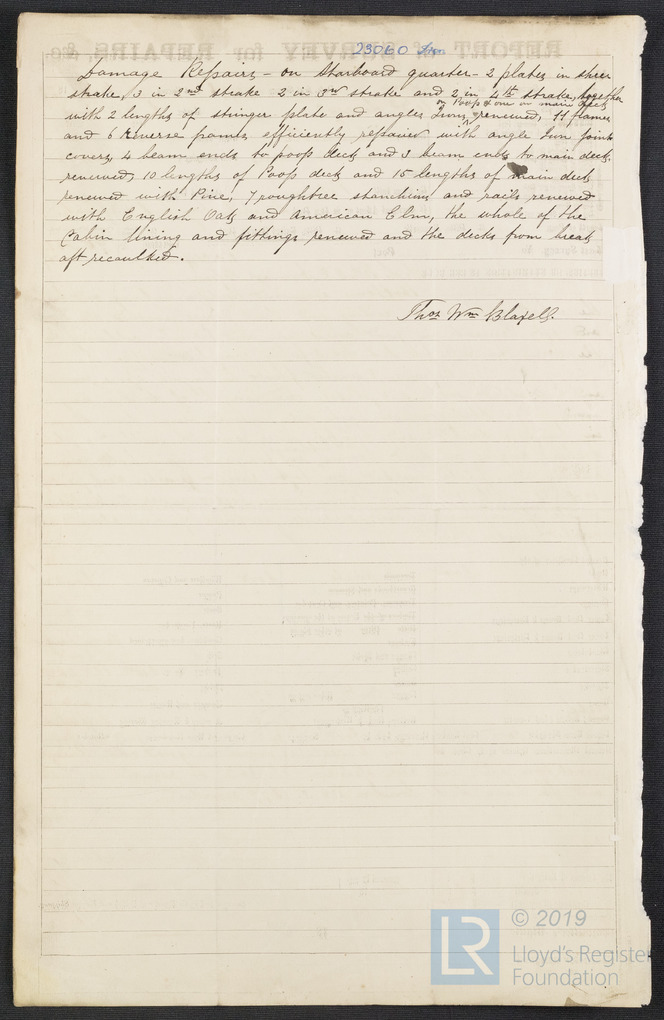 23060 Iron
Damage Repairs - on Starboard quarter - 2 plates in shrer
strake, 3 in 2nd strake 2 in 3rd strake and 2 in 4th strake, together
on Poop & one on main deck
with 2 lengths of stringer plate and angle Iron, renewed, 11 frames
and 6 Reverse frames efficiently repaired with angle Iron joint
covers, 4 beam ends to poop deck and 3 beam ends to main deck
renewed, 10 lengths of Poop deck and 15 lengths of main deck
renewed with Pine, 7 roughtree stanchions and rails renewed
with English Oak and American Elm, the whole of the
Cabin lining and fittings renewed and the decks from break
aft recaulked.
Thos Wm Blaxell.
© 2019
LR
Lloyd's Register
Foundation